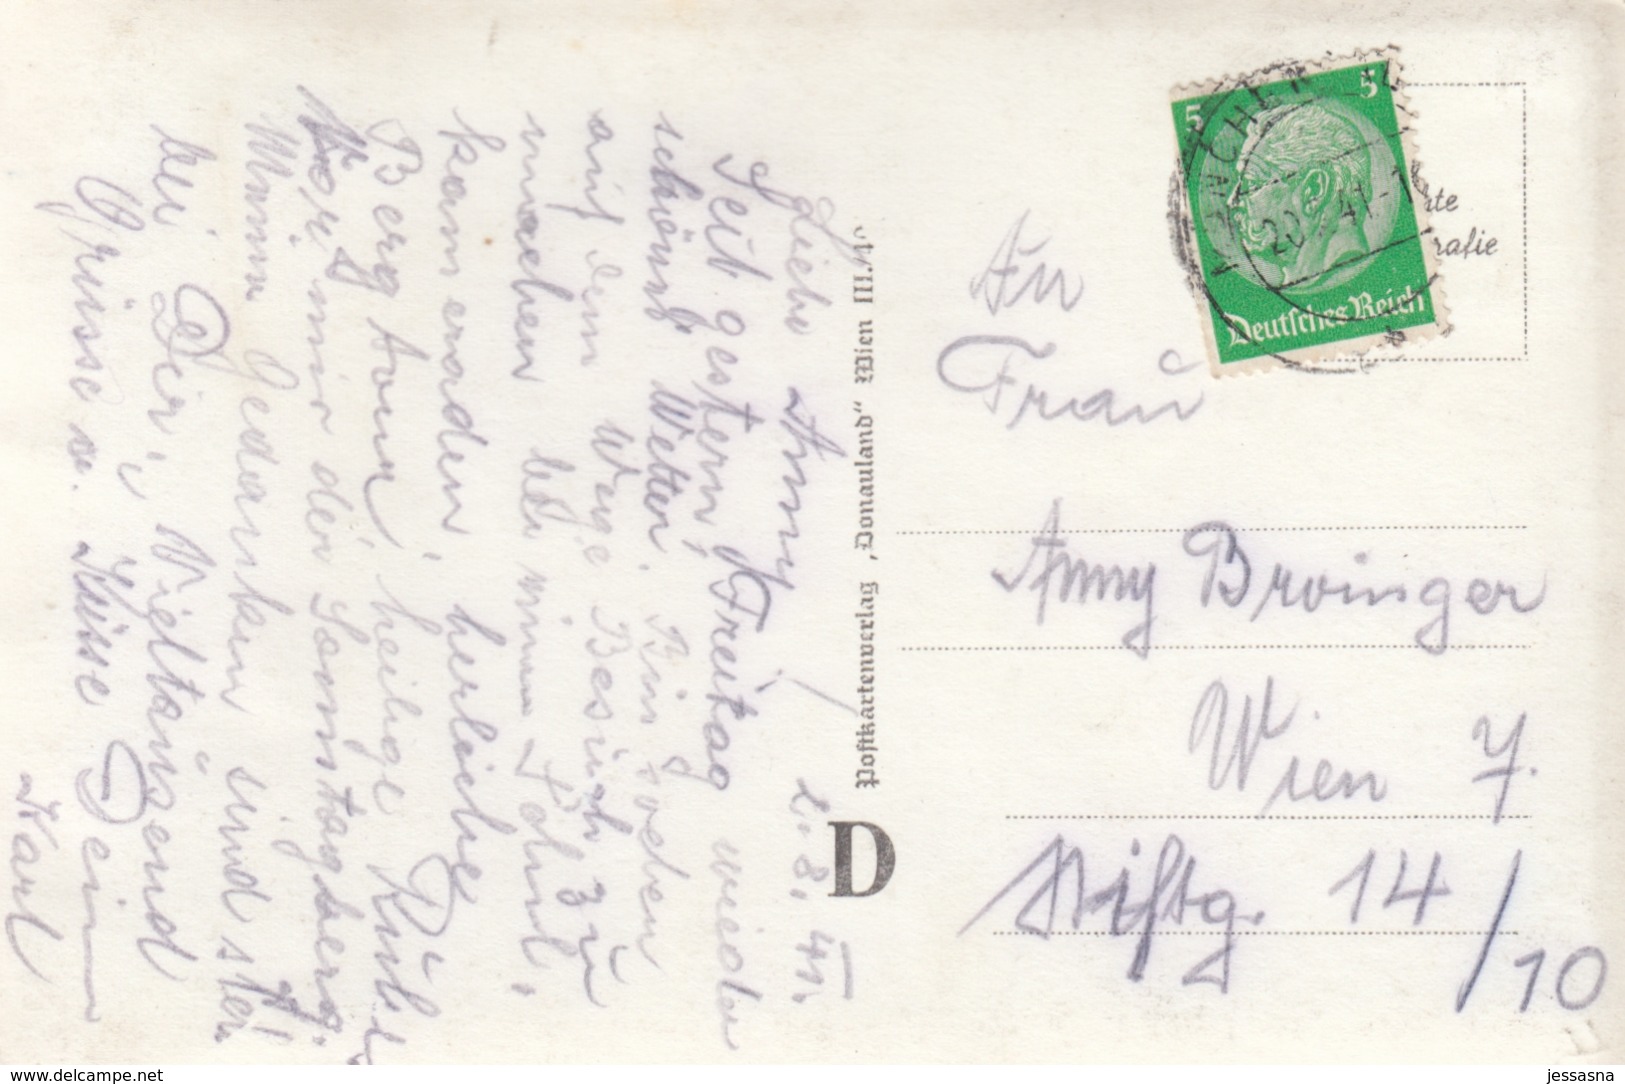 Liebe Anny! 2. 8. 41.
Seit gestern, Freitag wieder
schönst Wetter, Bin soeben
auf dem Wege Besuch zu
machen bei
kameraden, herliche
Berg tour, heilige Ruhe
vor mir der Sonntagsberg.
Meine Gedanken sind stets
bei Dir, Vieltausend
Grüsse u. Küsse Dein
Karl
Postkartenverlag „Donauland“ Wien III.
D
5 5
Deutsches Reich
41
rafie
An
Frau
Anny Broinger
Wien 7.
Stiftg. 14/10
www.delcampe.net
jessasna